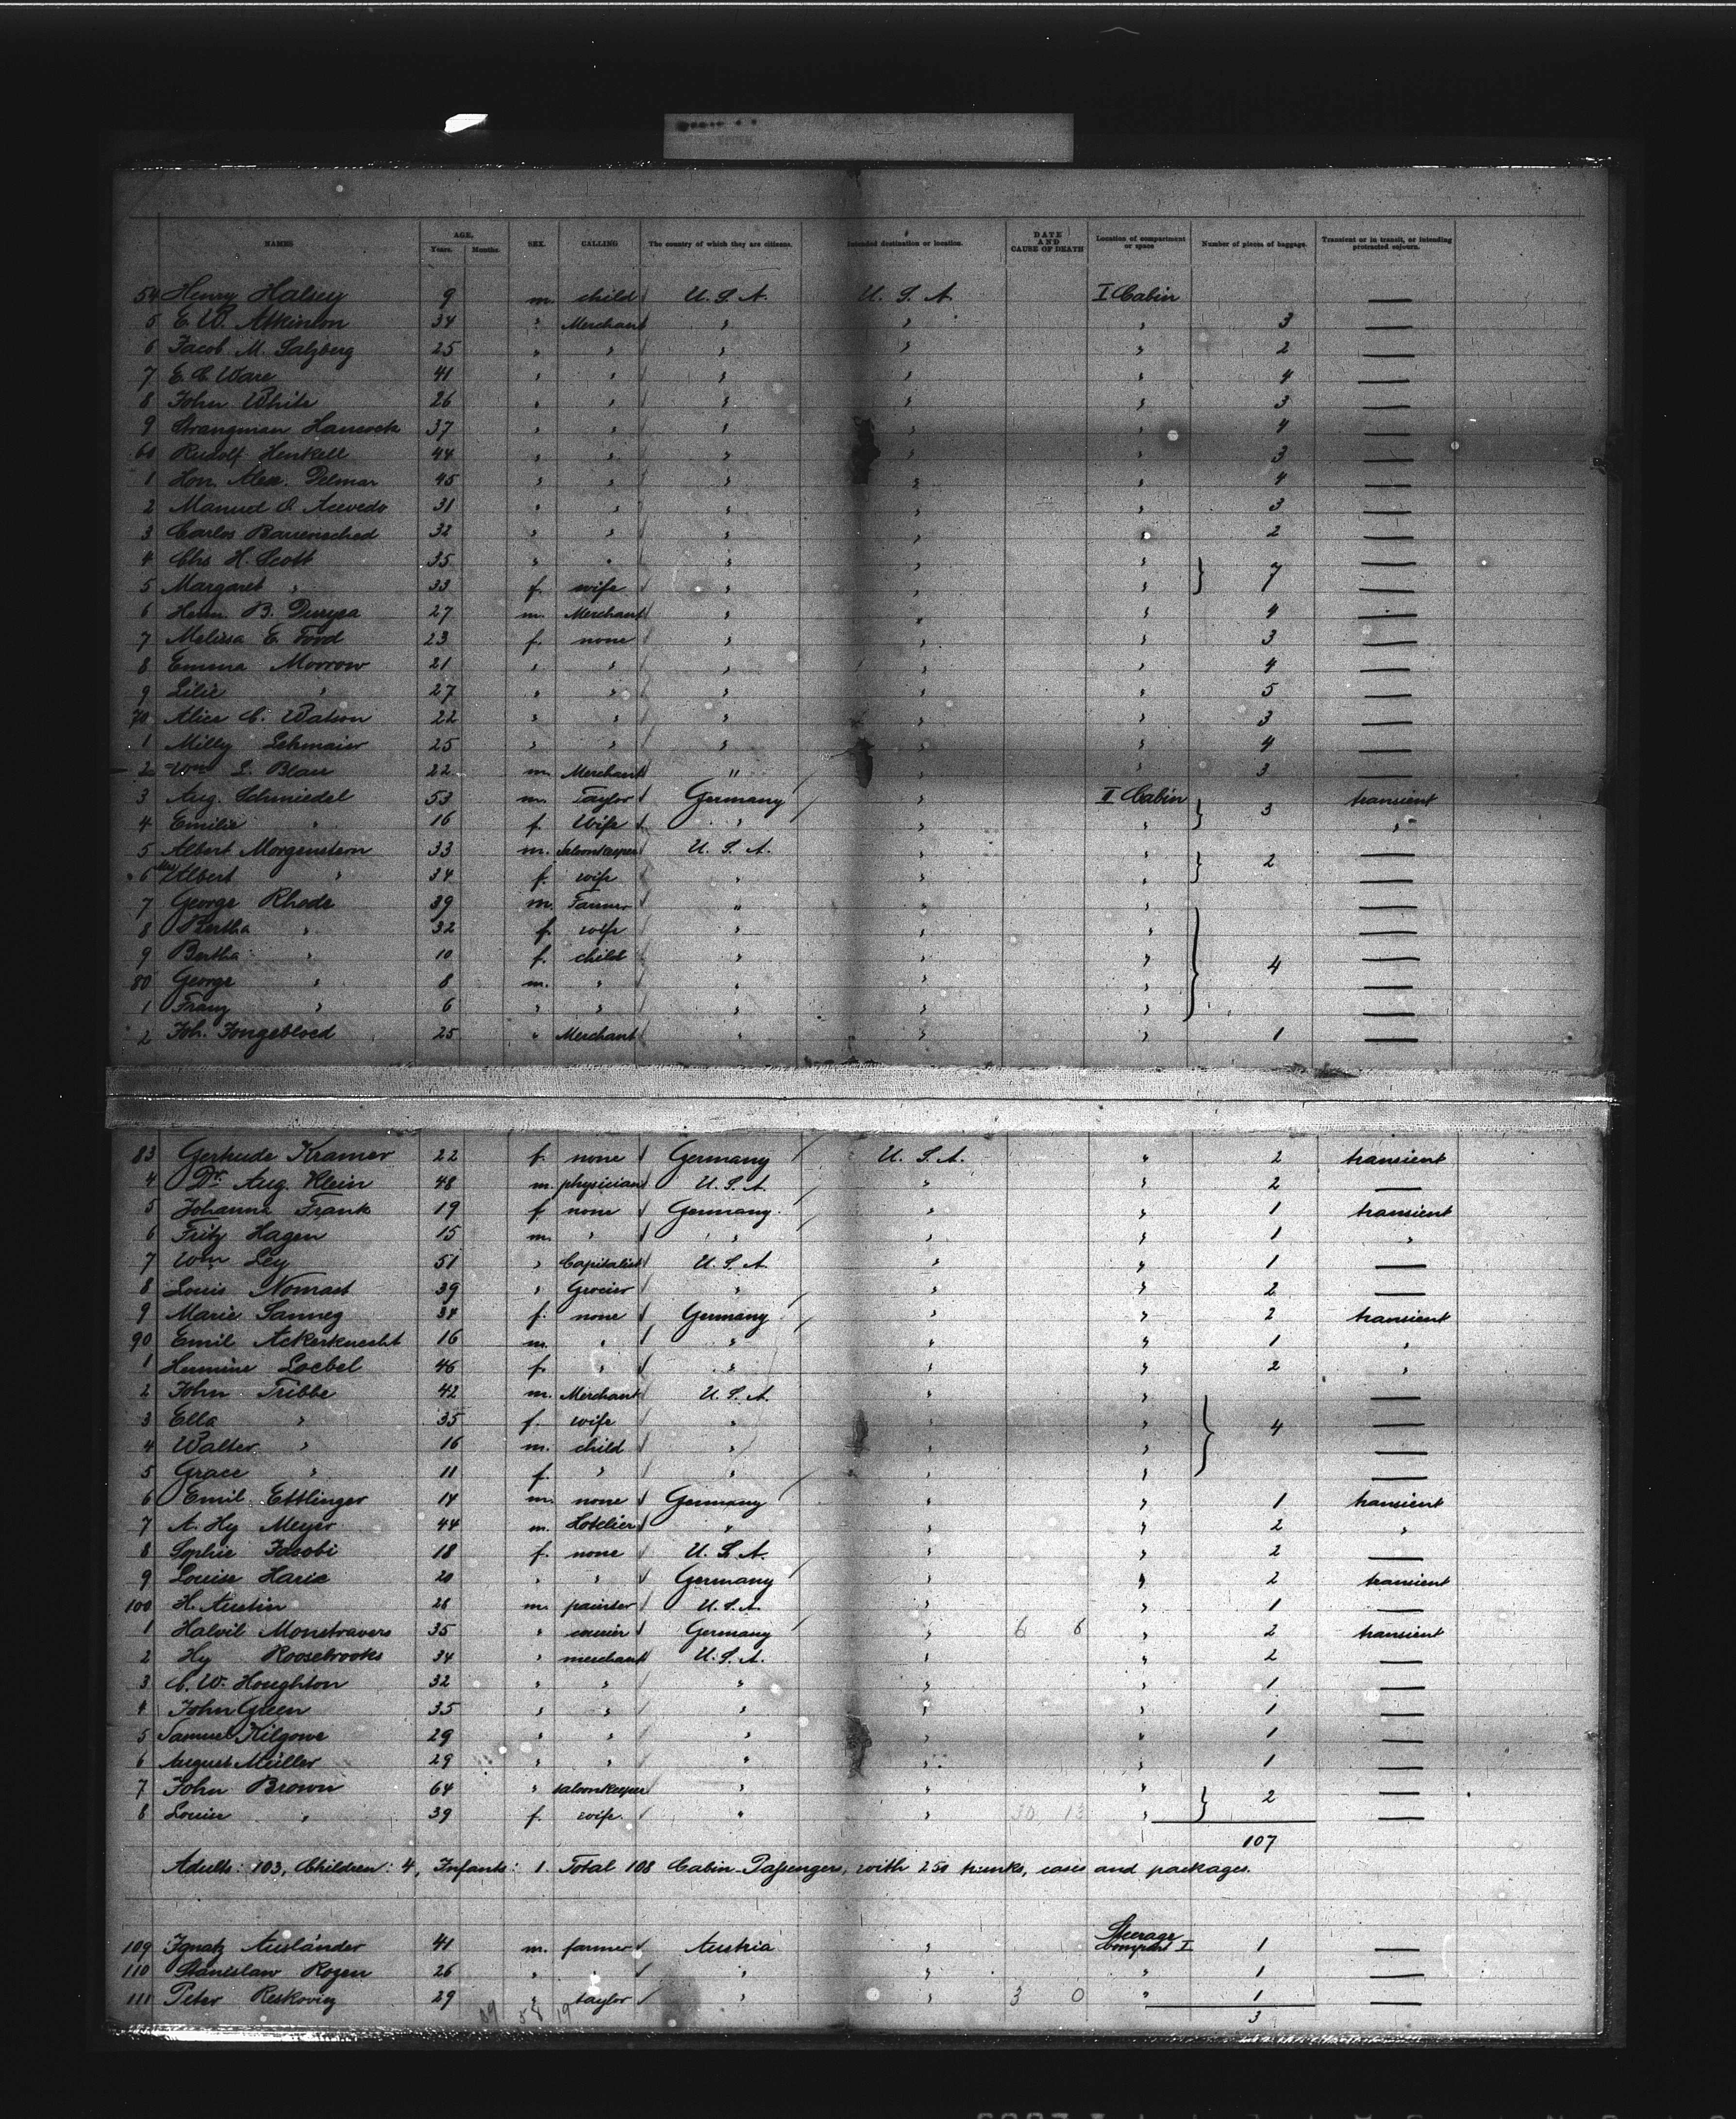 NAMES AGE, Years. Months. SEX. CALLING The country of which they are citizens. Intended destination or location. DATE AND CAUSE OF DEATH Location of compartment or space Number of pieces of baggage. Transient or in transit, or intending protracted sojourn.
54 Henry Halsey 9 m. child U. S. A. U. S. A. I Cabin —
5 E. W. Atkinson 34 " Merchant " " " 3 —
6 Jacob M. Salzberg 25 " " " " " 2 —
7 E. C. Ware 41 " " " " " 4 —
8 John White 26 " " " " " 3 —
9 Strangman Hancock 37 " " " " " 4 —
60 Rudolf Henkell 44 " " " " " 3 —
1 Hon. Alex. Delmar 45 " " " " " 4 —
2 Manuel O. Acevedo 31 " " " " " 3 —
3 Carlos 32 " " " " " 2 —
4 Chs H. Scott 35 " " " " " 7 —
5 Margaret " 33 f. wife " " " —
6 Herm. B. Duryea 27 m. Merchant " " " 4 —
7 Melissa E. Ford 23 f. none " " " 3 —
8 Emma Morrow 21 " " " " " 4 —
9 Lilie " 27 " " " " " 5 —
70 Alice C. Watson 22 " " " " " 3 —
1 Milly Lehmaier 25 " " " " " 4 —
2 Wm L. Blair 22 m. Merchant " " " 3 —
3 Aug. Schmiedel 53 m. Taylor Germany " II Cabin 3 transient
4 Emilie " 16 f. Wife " " " "
5 Albert Morgenstern 33 m. Saloonkeeper U. S. A. " " 2 —
6 Mrs Albert " 34 f. wife " " " —
7 George Rhode 39 m. Farmer " " " —
8 Bertha " 32 f. wife " " " —
9 Bertha " 10 f. child " " " 4 —
80 George " 8 m. " " " " —
1 Franz " 6 " " " " " —
2 Joh. Jongebloed 25 " Merchant " " " 1 —
83 Gertrude Kramer 22 f. none Germany U. S. A. " 2 transient
4 Dr. Aug. Klein 48 m. physician U. S. A. " " 2 —
5 Johanna Frank 19 f. none Germany " " 1 transient
6 Fritz Hagen 15 m. " " " " 1 "
7 Wm Ley 51 " Capitalist U. S. A. " " 1 —
8 Louis Nomast 39 " Grocier " " " 2 —
9 Marie Sanneg 34 f. none Germany " " 2 transient
90 Emil Ackerknecht 16 m. " " " " 1 "
1 Hermine Loebel 46 f. " " " " 2 "
2 John Tribbe 42 m. Merchant U. S. A. " " —
3 Ella " 35 f. wife " " " 4 —
4 Walter " 16 m. child " " " —
5 Grace " 11 f. " " " " —
6 Emil Ettlinger 14 m. none Germany " " 1 transient
7 A. Hy Meyer 44 m. Hotelier " " " 2 "
8 Sophie Jacobi 18 f. none U. S. A. " " 2 —
9 Louise Harie 20 " " Germany " " 2 transient
100 H. Austin 28 m. painter U. S. A. " " 1 —
1 Halvil Monstravers 35 " courier Germany " 6 6 " 2 transient
2 Hy Roosebrooks 34 " merchant U. S. A. " " 2 —
3 C. W. Houghton 32 " " " " " 1 —
4 John Green 35 " " " " " 1 —
5 Samuel Kilgowe 29 " " " " " 1 —
6 August Müller 29 " " " " " 1 —
7 John Brown 64 " saloonkeeper " " " 2 —
8 Louise " 39 f. wife " " 30 13 " —
107
Adults: 103, Children: 4, Infants: 1. Total 108 Cabin-Passengers, with 250 trunks, cases and packages.
109 Ignatz Ausländer 41 m. farmer Austria " Steerage Compart I 1 —
110 Stanislaw Rozen 26 " " " " " 1 —
111 Peter Reskovicz 29 " taylor " " 3 0 " 1 —
89 58 19 3